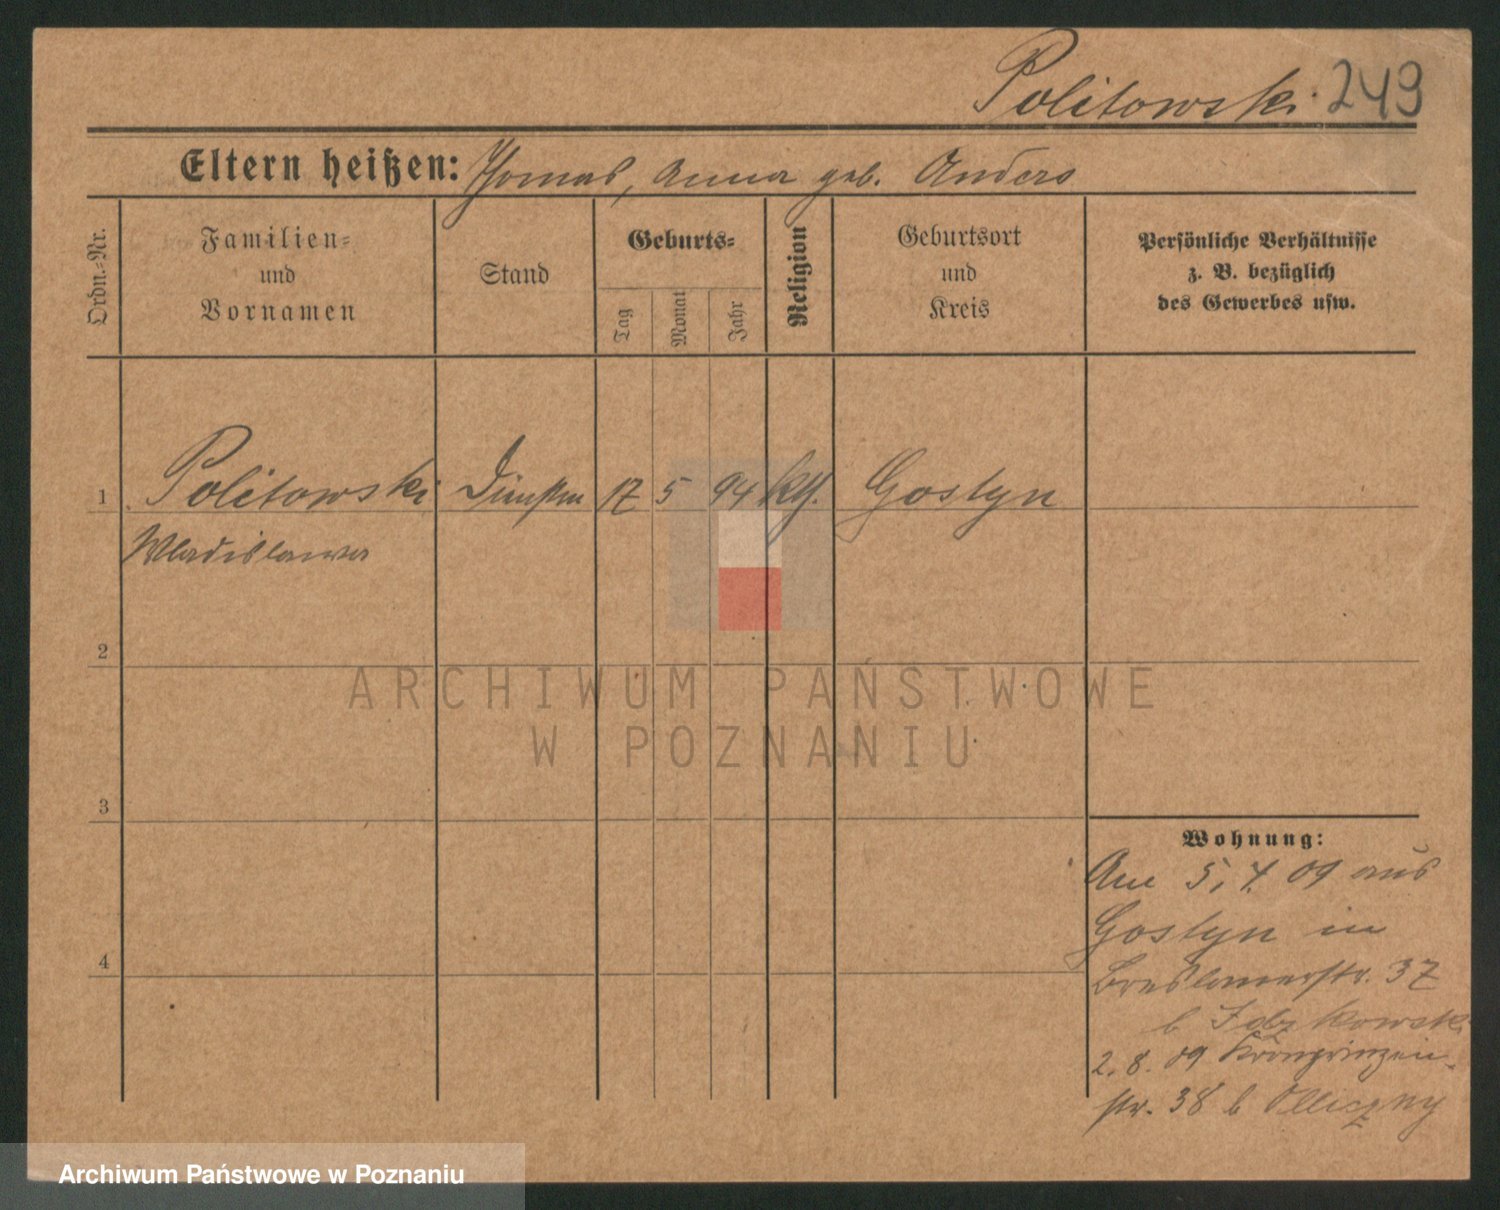 Politowski 249
Eltern heißen: Thomas, Anna geb. Anders
Ordn.-Nr.
Familien-
und
Vornamen
Stand
Geburts-
Tag
Monat
Jahr
Religion
Geburtsort
und
Kreis
Persönliche Verhältnisse
z. B. bezüglich
des Gewerbes usw.
1 Politowski 17 5 94 kth. Gostyn
Wladislawa
2
3
4
Wohnung:
Am 5. 4. 09 aus
Gostyn in
Breslauerstr. 37
b
2. 8. 09 Kronprinzen-
str. 38 b
ARCHIWUM PAŃSTWOWE
W POZNANIU
Archiwum Państwowe w Poznaniu